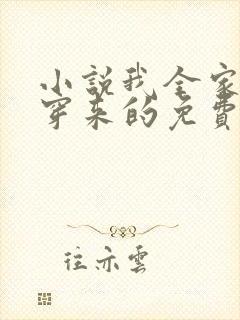 小説我全家
穿来的免費
往亦雲